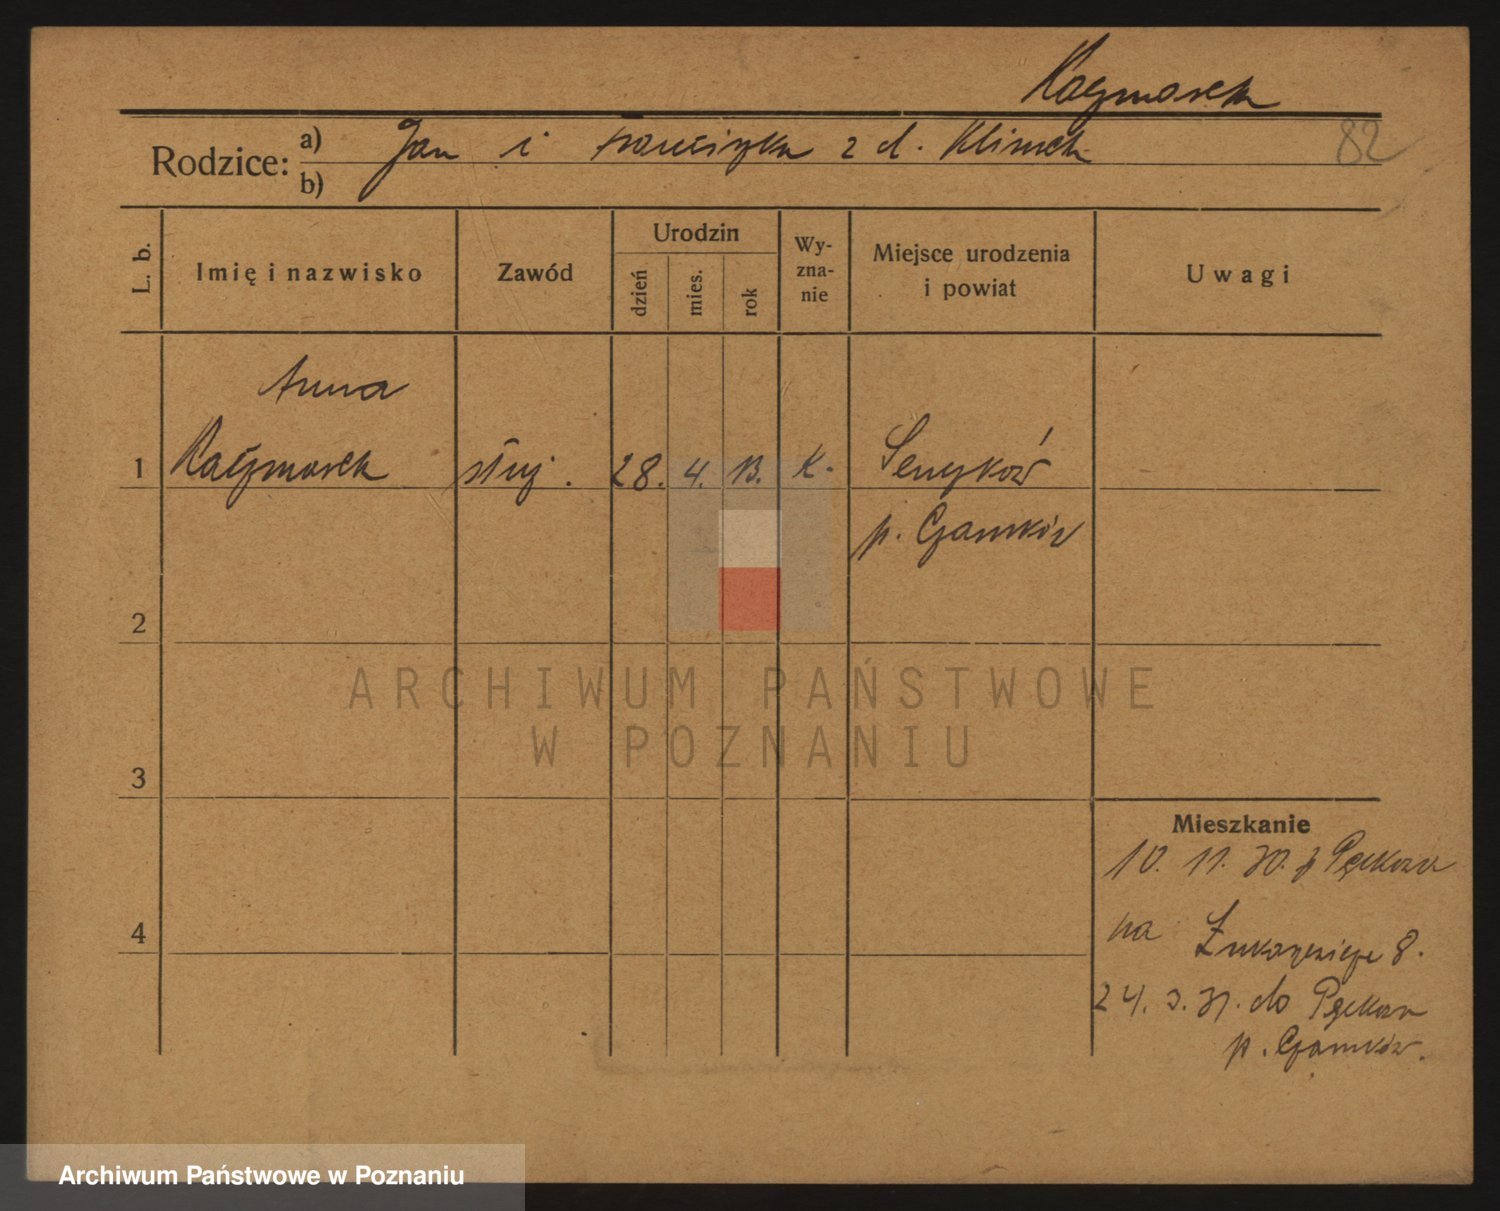 Kaczmarek
82
Rodzice: a) Jan i Franciszka z d. Klimek
b)
L. b.
Imię i nazwisko
Zawód
Urodzin
dzień
mies.
rok
Wy-
zna-
nie
Miejsce urodzenia
i powiat
Uwagi
Anna
1 Kaczmarek służ. 28. 4. 13. K.
p. Czarnków
2
3
4
Mieszkanie
10. 11. 30. z
na 8.
24. 3. 31. do
p. Czarnków.
ARCHIWUM PAŃSTWOWE
W POZNANIU
Archiwum Państwowe w Poznaniu